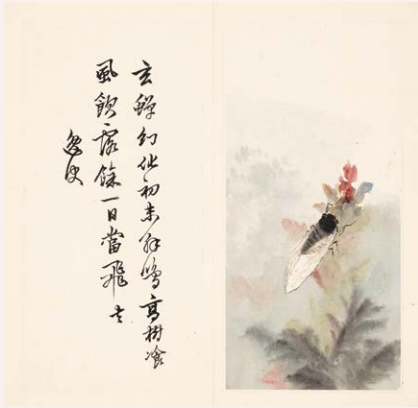 玄蟬幻化初未解鳴高樹飡
風飲露餘一日當飛去